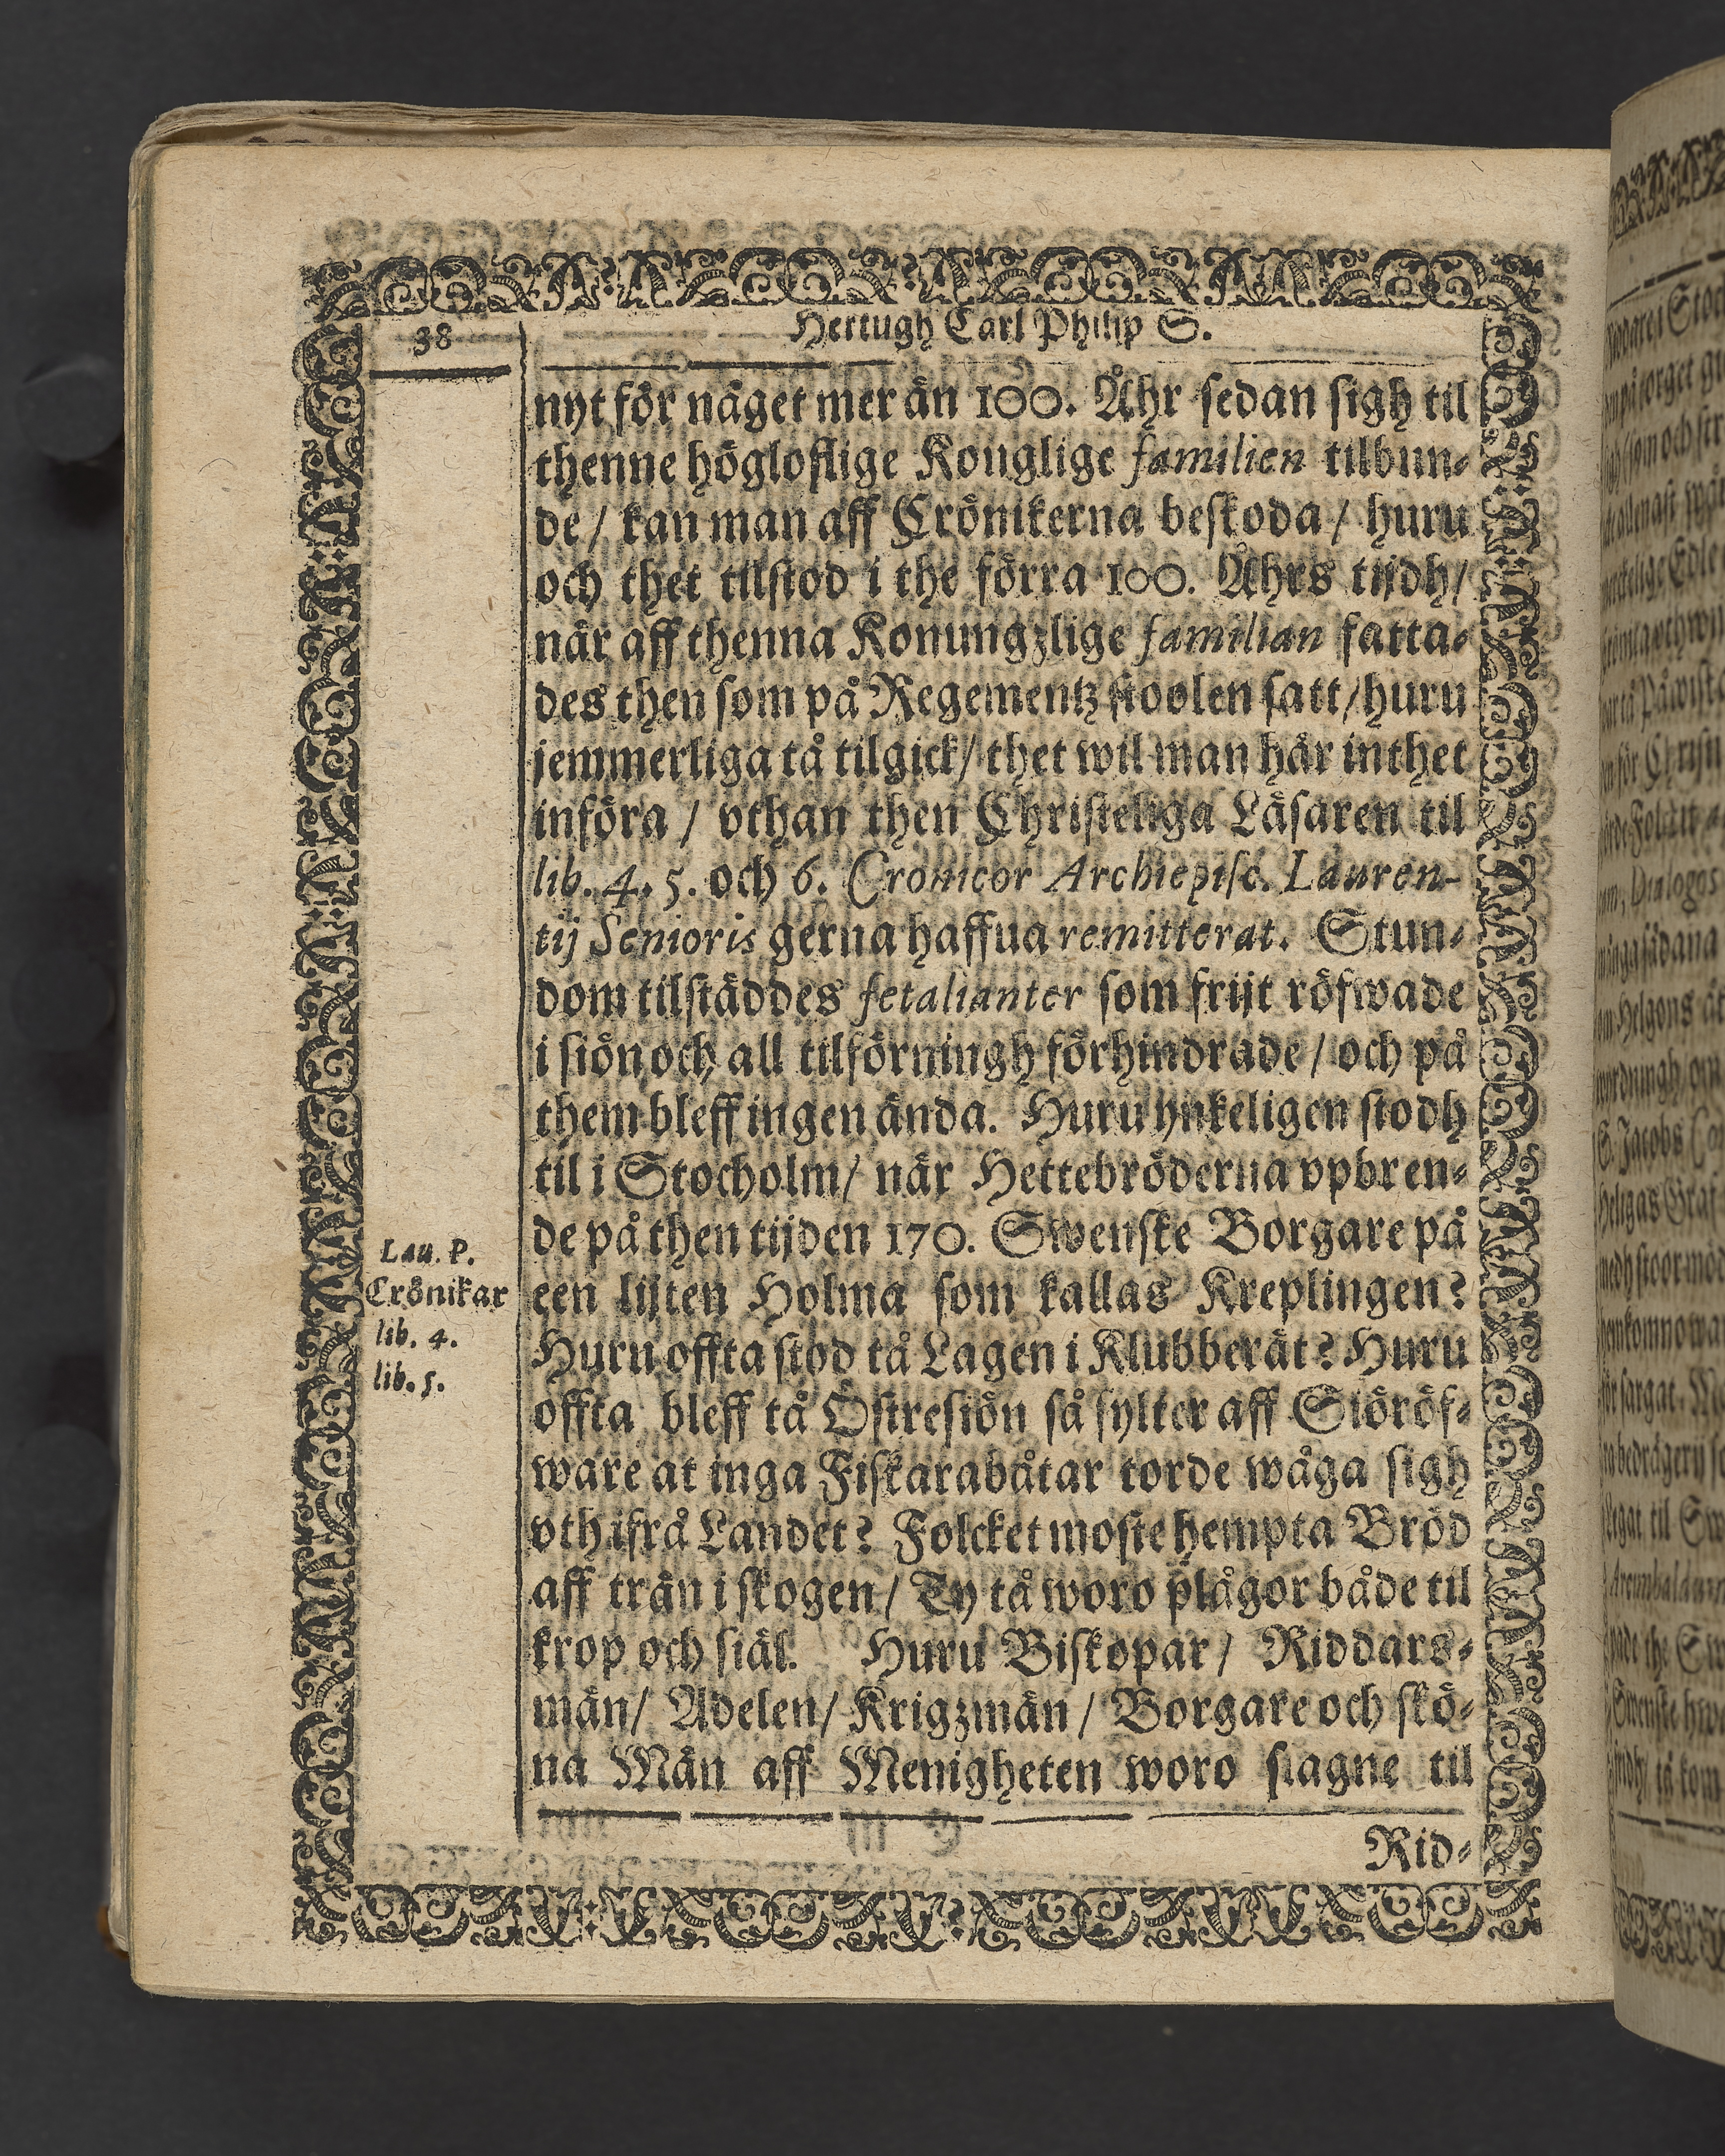 38
Hertugh Carl Philip S.
nyt för näget mer än 100. Åhr sedan sigh til
thenne högloflige Konglige familien tilbun-
de / kan man aff Crönikerna beskoda / huru
och thet tilstod i the förra 100. Åhrs tijdh /
när aff thenna Konungzlige familian fatta-
des then som på Regementz stoolen satt / huru
jemmerliga tå tilgick / thet wil man här inthet
införa / vthan then Christeliga Läsaren til
lib. 4. 5. och 6. Cronicor Archiepisc. Lauren-
tij Senioris gerna haffua remitterat. Stun-
dom tilstäddes fetalianter som frijt röfwade
i siön och all tilförningh förhindrade / och på
them bleff ingen ända. Huru ynkeligen stodh
til i Stocholm / när Hettebröderna vpbren-
de på then tijden 170. Swenske Borgare på
een lijten Holma som kallas Kreplingen?
Huru offta stod tå Lagen i Klubberät? Huru
offta bleff tå Östresiön så fylter aff Siöröf-
ware at inga Fiskarabåtar torde wåga sigh
vth ifrå Landet? Folcket moste hempta Bröd
aff trän i skogen / Ty tå woro plågor både til
krop och siäl. Huru Biskopar / Riddars-
män / Adelen / Krigzmän / Borgare och skö-
na Män aff Menigheten woro slagne til
Rid-
Lau. P.
Crönikar
lib. 4.
lib. 5.